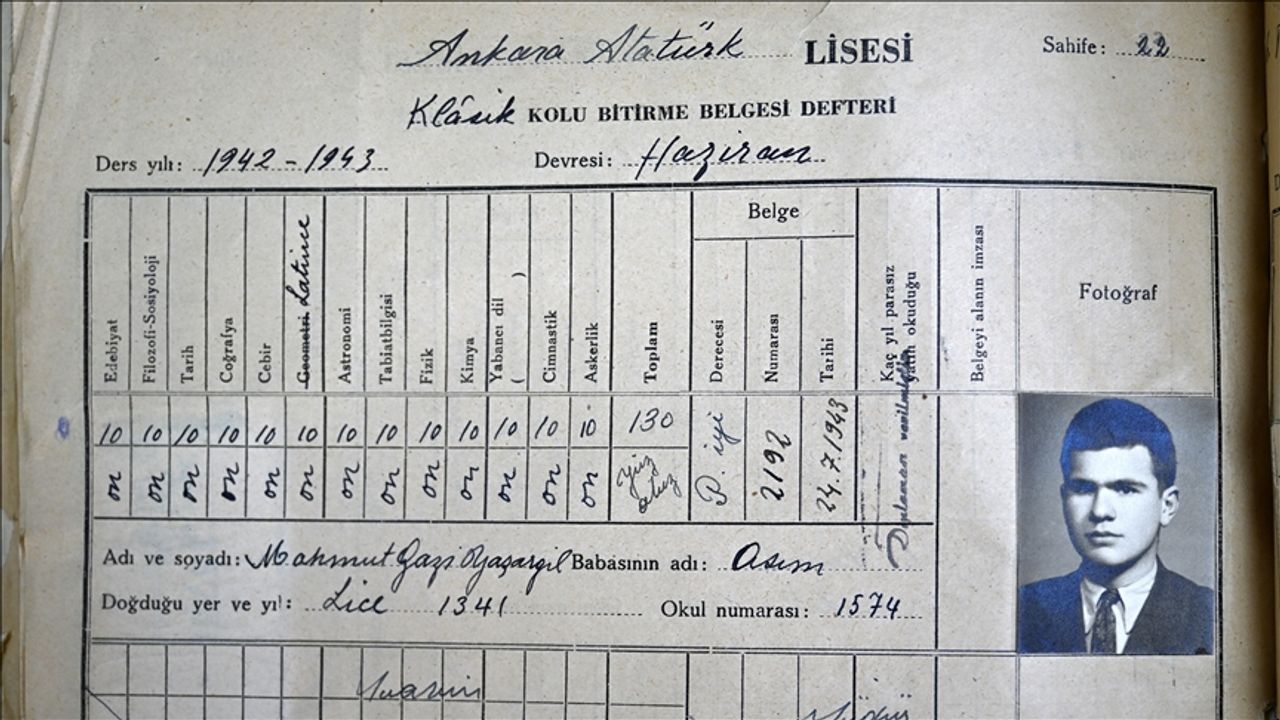 Ankara Atatürk LİSESİ
Sahife: 22
Klâsik KOLU BİTİRME BELGESİ DEFTERİ
Ders yılı: 1942-1943 Devresi: Haziran
Edebiyat
Filozofi-Sosiyoloji
Tarih
Coğrafya
Cebir
Geometri Latince
Astronomi
Tabiatbilgisi
Fizik
Kimya
Yabancı dil ( )
Cimnastik
Askerlik
Toplam
Belge
Derecesi
Numarası
Tarihi
Kaç yıl parasız
yatılı okuduğu
Belgeyi alanın imzası
Fotoğraf
10 10 10 10 10 10 10 10 10 10 10 10 10 130
on on on on on on on on on on on on on yüz
otuz
P. iyi
2192
24.7.1943
Diploması
Adı ve soyadı: Mahmut Gazi Yaşargil Babasının adı: Asım
Doğduğu yer ve yıl: Lice 1341 Okul numarası: 1574